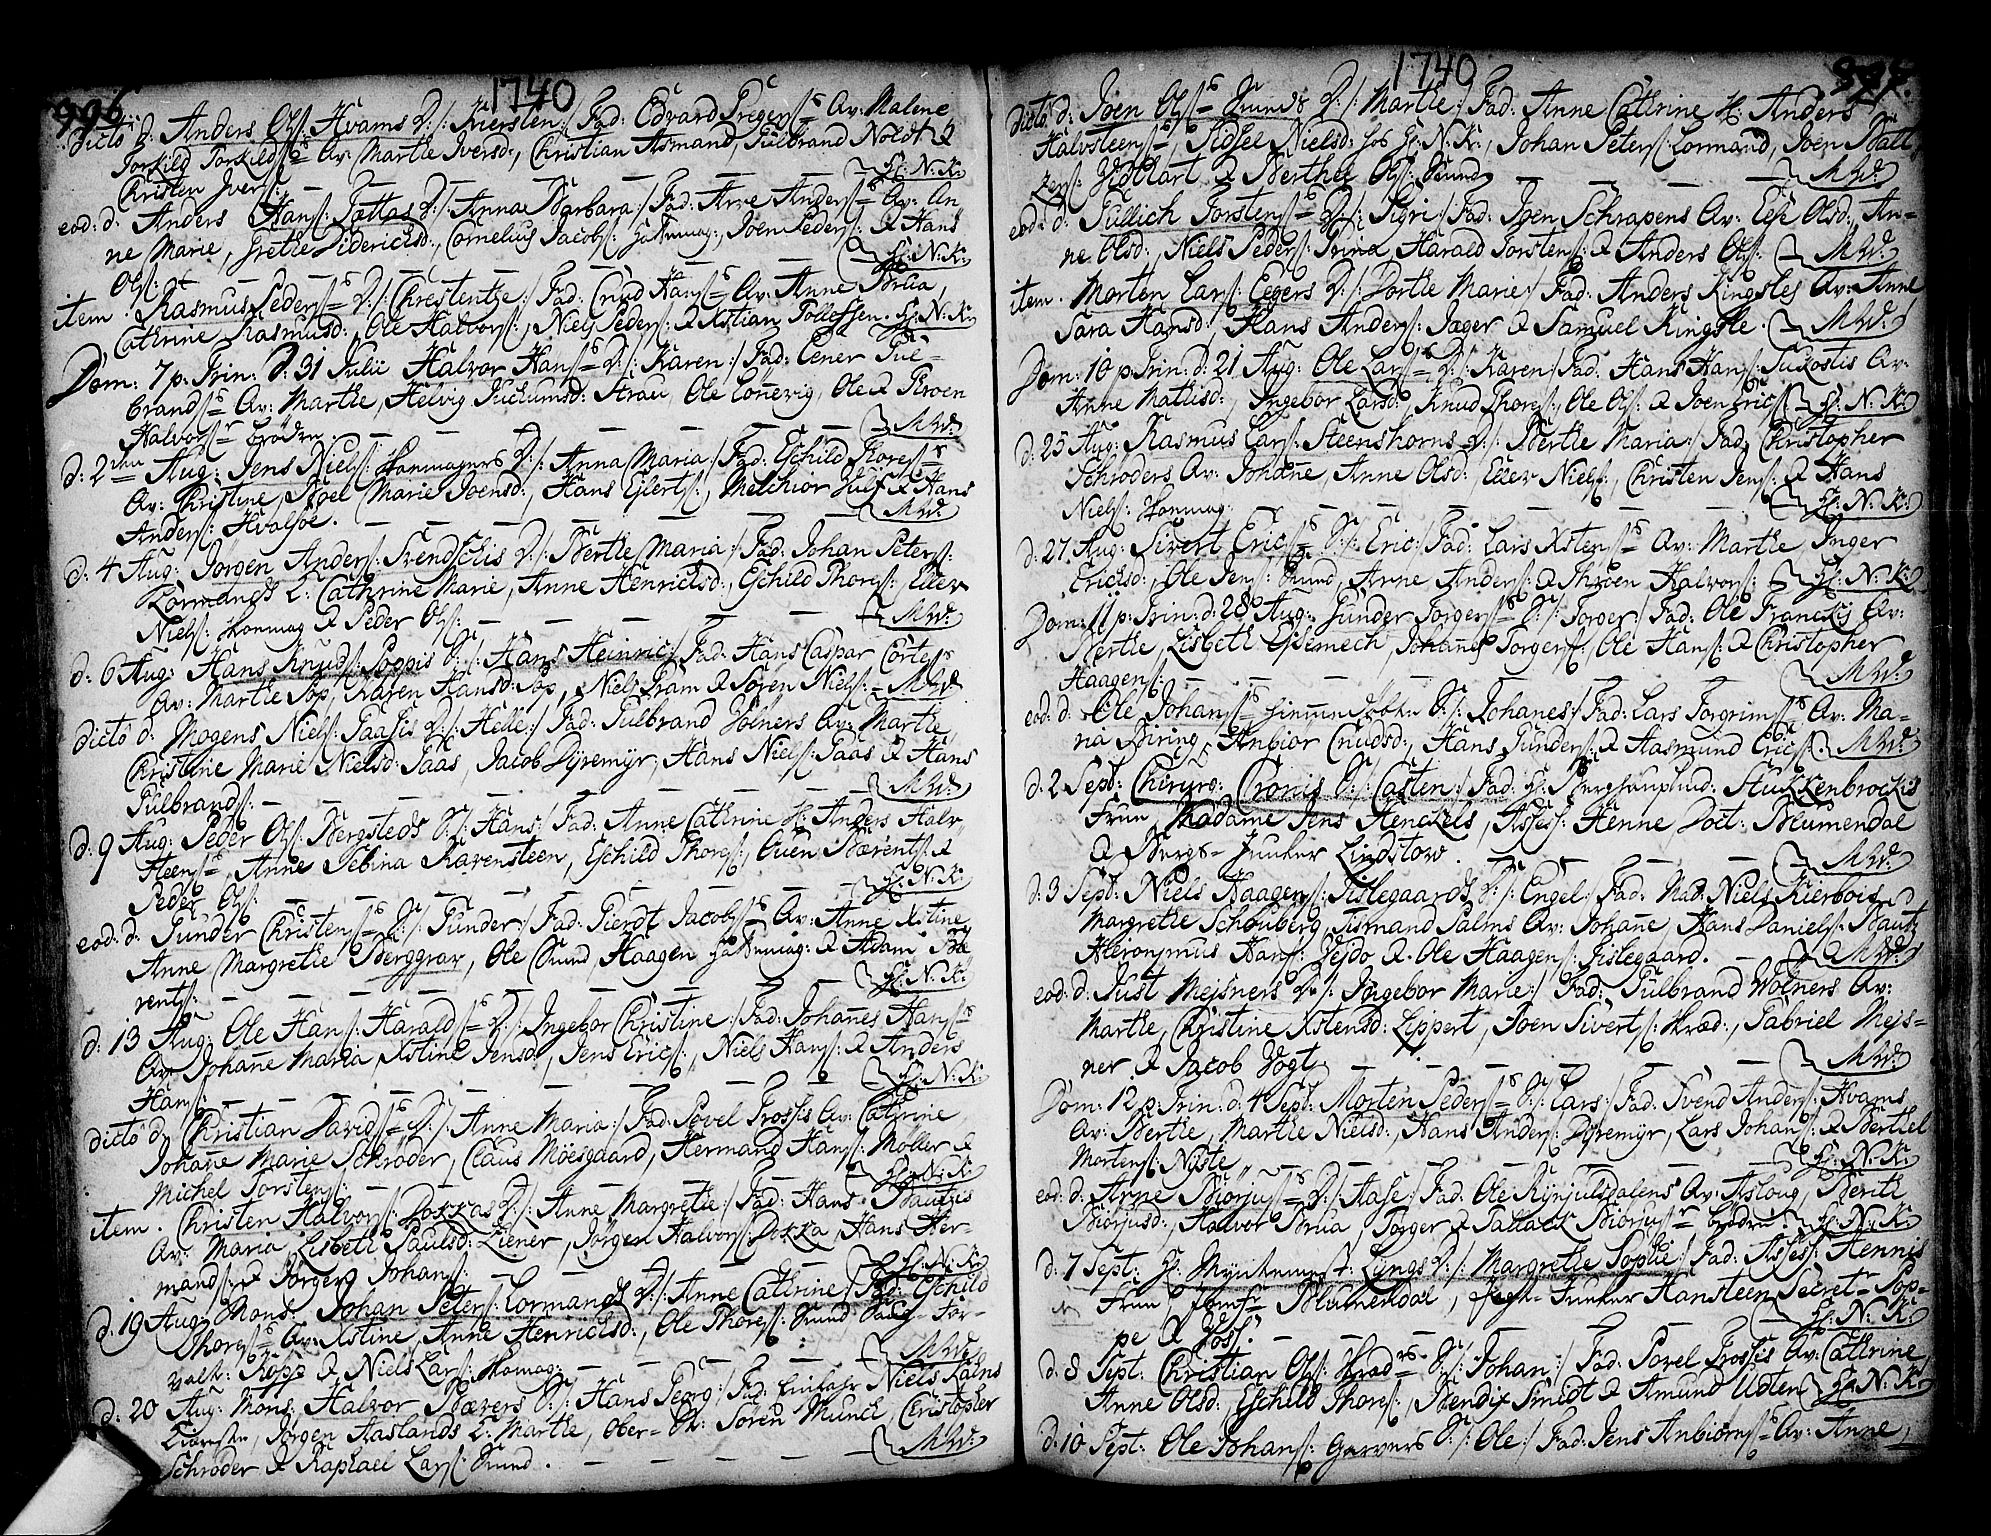 996
1740
dicto d: Anders Ols: Hvams D:/: Kiersten:/ Fad: Edvard Gregers: Qv: Malene
Torkild Torkilds: Qv: Marthe Iversd:, Christian Asmand, Gulbrand Noldt &
Christen Ivers: — — — — — H: N: K:
eod: d: Anders Hans: Tottas D:/: Anna Barbara:/ Fad: Arne Anders: Qv: An
ne Marie, Grethe Diderichsd:, Cornelius Jacobs:, Joen Peders: & Hans
Ols: — — — — — H: N: K:
item. Rasmus Peders: D:/: Chrestentze:/ Fad: Cnud Hans: Qv: Anne Brua,
Cathrine Rasmusd:, Ole Halvors:, Niels Peders: & Xstian Tollefsen. H: N: K:
Dom: 7 p: Trin: d: 31 Julii Halvor Hans: D:/: Karen:/ Fad: Eener Gul-
brands: Qv: Marthe, Helvig Juchumsd: Strau, Ole Lonevig, Ole & Throen
Halvors: brödre. — — — — MW:
d: 2den Aug: Jens Niels: Honmagers D:/: Anna Maria:/ Fad: Eschild Thores:
Qv: Christine, Noel Marie Joensd:, Hans Eilerts:, Melchior Juul & Hans
Anders: Hvalsöe. — — — — MW:
d: 4 Aug: Jörgen Anders: Svendschis D:/: Berthe Maria:/ Fad: Johan Peters:
Lormands L: Cathrine Marie, Anne Henrichsd:, Eschild Thores: Eller
Niels: Honmag & Peder Ols: — — — MW:
d: 6 Aug: Hans Knuds: Poppis S:/: Hans Heinric:/ Fad: Hans Caspar Cortes
Qv: Marthe Pop, Karen Hansd: Pop, Niels Fram & Sören Niels: MW:
dicto d: Mogens Niels: Paasis D:/: Helle:/ Fad: Gulbrand Wolners Qv: Marthe,
Christine Marie Nielsd: Paas, Jacob Dyremyr, Hans Niels: Paas & Hans
Gulbrands: — — — — MW:
d: 9 Aug: Peder Ols: Bergsteds S:/: Hans:/ Fad: Anne Cathrine H: Anders Halv-
steens:, Anne Sebina Ravensteen, Eschild Thores:, Ouen Bærents: &
Peder Ols: — — — — H: N: K:
eod: d: Gunder Christens: S:/: Gunder:/ Fad: Gierdt Jacobs: Qv: Anne Xstine
Anne Margrethe Berggrav, Ole Smed, Haagen & Adam Bæ
rents: — — — — H: N: K:
d: 13 Aug: Ole Hans: Haralds: D:/: Ingebor Christine:/ Fad: Johanes Hans:
Qv: Johane Maria, Xstine Jensd:, Jens Erics:, Niels Hans: & Anders
Hans: — — — — H: N: K:
dicto d: Christian Davids: D:/: Anne Maria:/ Fad: Povel Frossis Qv: Cathrine
Johane Marie Schröder, Claus Möesgaard, Hermand Hans: Moller &
Michel Torstens: — — — — H: N: K:
item. Christen Halvors: Dokkas D:/: Anne Margrethe:/ Fad: Hans Bautzis
Qv: Maria, Lisbeth Paulsd: Ziener, Jörgen Halvors: Dokka, Hans Her-
mands: & Jörgen Johans: — — — H: N: K:
d: 19 Aug: Mons: Johan Peters: Lormands D:/: Anne Cathrine:/ Fad: Eschild
Thores: Qv: Xstine, Anne Henrichsd:, Ole Thores: Smed, For-
valt: Kopp & Niels Lars: Homag: — — — MW:
d: 20 Aug: Mons: Halvor Bævers S:/: Hans Georg:/ Fad: Niels Kalns
Jörgen Aaslands L: Marthe, Ober- Sören Munch, Christopher
Schröder & Raphael Lars: Smed. — — — MW:
1740
997.
dicto d: Joen Ols: Smeds D:/: Marthe:/ Fad: Anne Cathrine H: Anders
Halvsteens:, Sidsel Nielsd: hos H: N: K:, Johan Peters: Lormand, Joen Balt
zers: Wollart & Berthel Ols: Smed — — MW:
eod: d: Tullich Torstens: D:/: Sigri:/ Fad: Joen Schrapens Qv: Else Olsd:, An-
ne Olsd:, Niels Peders: Trina, Harald Torstens: & Anders Ols: — MW:
item. Morten Lars: Eegers D:/: Dorthe Marie:/ Fad: Anders Kingsles Qv: Anne
Sara Hansd:, Hans Anders: Jæger & Samuel Kingsle. MW:
Dom: 10 p: Trin: d: 21 Aug: Ole Lars: D:/: Karen:/ Fad: Hans Hans: Tukostis Qv:
Anne Mathisd:, Ingebor Larsd:, Knud Thores:, Ole Ols: & Joen Erics: H: N: K:
d: 25 Aug: Rasmus Lars: Steenshorns D:/: Berthe Maria:/ Fad: Christopher
Schröders Qv: Johane, Anne Olsd:, Eller Niels:, Christen Jens: & Hans
Niels: Honmag: — — — — H: N: K:
d: 27 Aug: Sivert Erics: S:/: Eric:/ Fad: Lars Xstens: Qv: Marthe Inger
Erichsd:, Ole Jens: Smed, Arne Anders: & Throen Halvors: H: N: K:
Dom: 11 p: Trin: d: 28 Aug: Gunder Torgers: S:/: Torger:/ Fad: Ole Francisci Qv:
Berthe, Lisbeth Gisemech, Johanes Torgers:, Ole Hans: & Christopher
Haagens: — — — — MW:
eod: d: Ole Johans: S:/: Johanes:/ Fad: Lars Torgrims: Qv: Ma-
ria Biring, Anbior Cnudsd:, Hans Gunders: & Aasmund Erics: MW:
d: 2 Sept: Chirurg: Cronis S:/: Casten:/ Fad: H: Berghauptmd: Stukkenbrocks
Frue, Madame Jens Henckels, Assess: Henne, Doct: Blumendal
& Bergs-Juncker Lindstow. — — MW:
d: 3 Sept: Niels Haagens: Fislegaards D:/: Engel:/ Fad: Mad: Niels Kierbois,
Margrethe Schouberg, Asmand Palms Qv: Johane, Hans Daniels: Bautz
Hieronymus Hans: Vejdo & Ole Haagens: Fislegaard. — MW:
eod: d: Just Mejsners D:/: Ingebor Marie:/ Fad: Gulbrand Wolners Qv:
Marthe, Christine Xstensd: Lippert, Joen Siverts: Skræd:, Gabriel Mejs-
ner & Jacob Vogt — — — — MW:
Dom: 12 p: Trin: d: 4 Sept: Morten Peders: S:/: Lars:/ Fad: Svend Anders: Hvams
Qv: Berthe, Marthe Nielsd:, Hans Anders: Dyremyr, Lars Johans: & Berthel
Mortens: Nyste — — — — H: N: K:
eod: d: Arne Biörjus: D:/: Aase:/ Fad: Ole Rynjulsdalens Qv: Asloug, Berith
Biörjusd:, Halvor Brua, Torger & Tallach Biörjus: brödre. H: N: K:
d: 7 Sept: H: Myntmest: Lyngs D:/: Margrethe Sophie:/ Fad: Assess: Hennis
Frue, Jomfr Blumendal, Juncker Hansteen, Secret Pop-
pe & Joss: — — — — H: N: K:
d: 8 Sept: Christian Ols: Skræd S:/: Johan:/ Fad: Povel Frossis Qv: Cathrine
Anne Olsd:, Eschild Thores:, Bendix Smidt & Amund Udten H: N: K:
d: 10 Sept: Ole Johans: Garvers S:/: Ole:/ Fad: Jens Anbiörns: Qv: Anne,